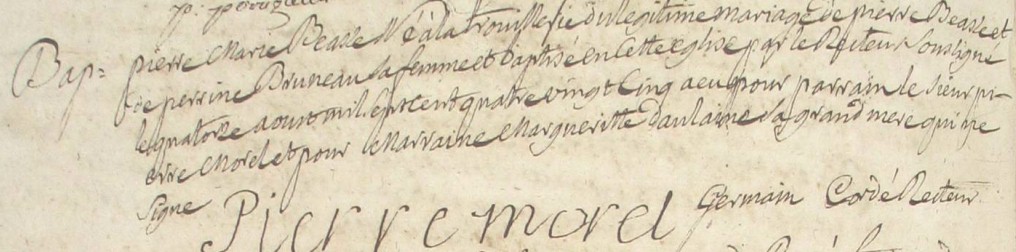 Bap= pierre Marie Beasse Né à la trouillerie du legitime mariage de pierre Beasse et
de perrine Bruneau sa femme et baptisé en cette eglise par le Recteur sousigné
le quatorze aoust mil sept cent quatre vingt cinq a eu pour parrain le sieur pi-
erre Morel et pour Marraine Margueritte daulaine sa grand mere qui ne
signe
Pierre morel Germain Cordé Recteur